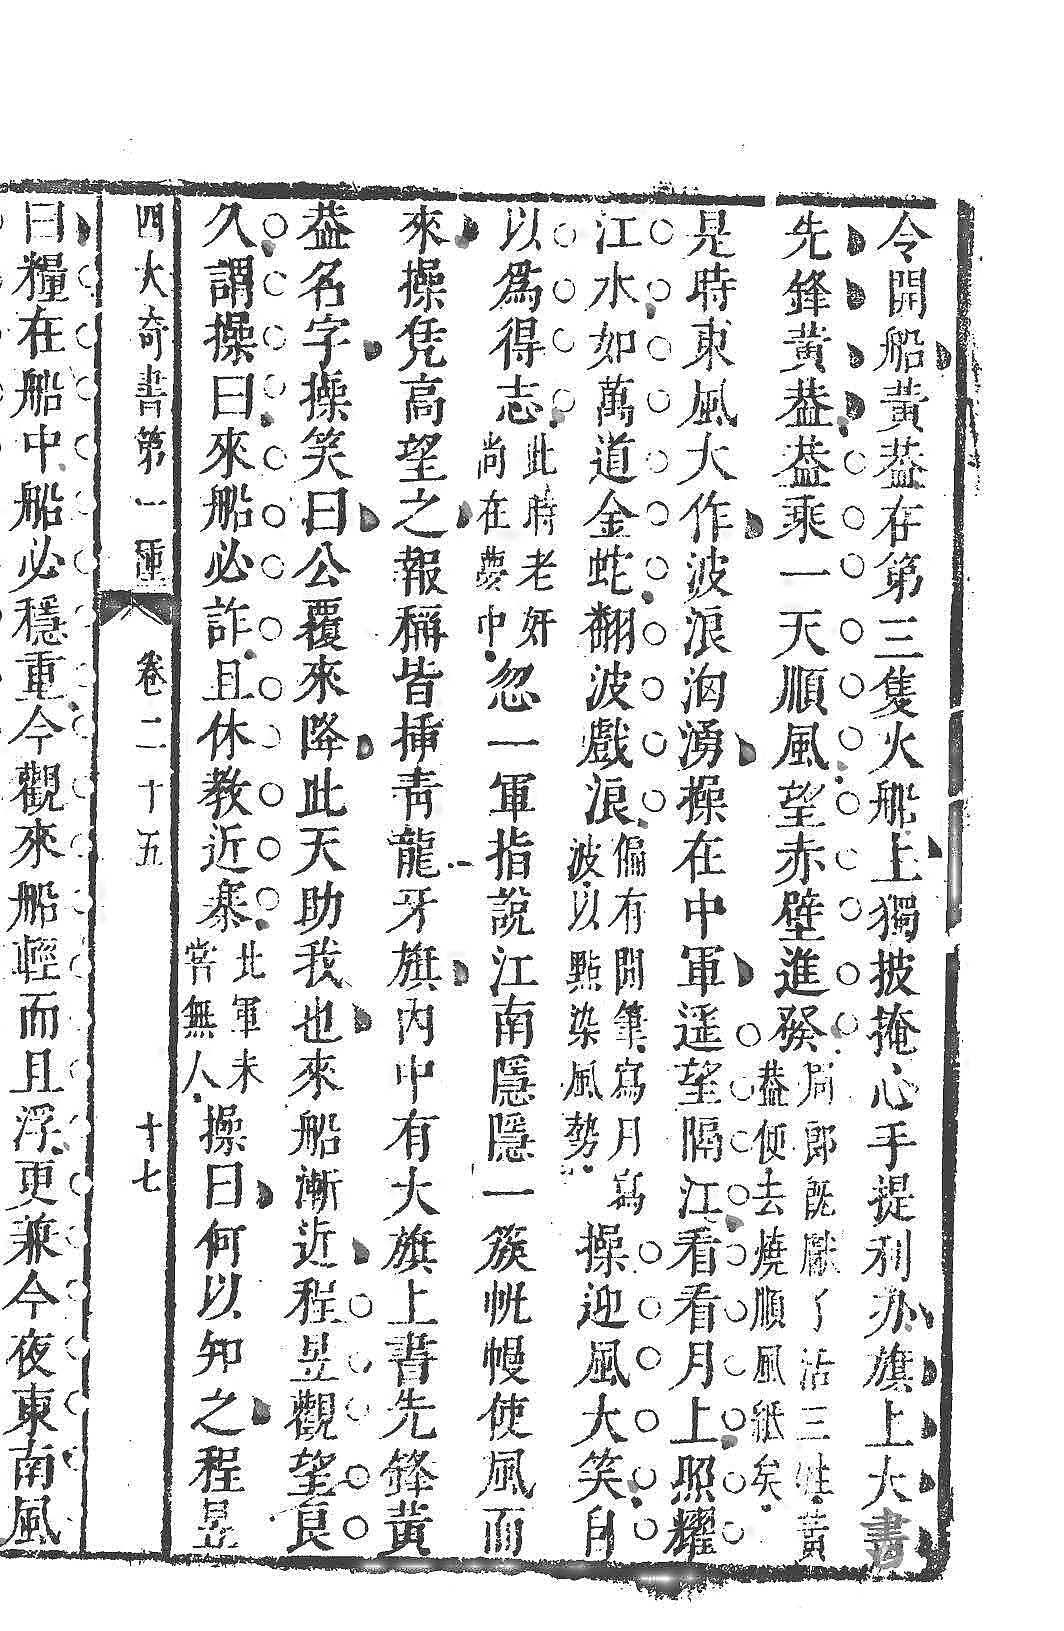 令開船黃葢在第三隻火船上獨披掩心手提利刃旗上大書
先鋒黃葢葢乘一天順風望赤壁進發周郎既獻了沽三牲黃
葢便去燒順風紙矣
是時東風大作波浪洶湧操在中軍遥望隔江看看月上照耀
江水如萬道金蛇翻波戲浪偏有閒筆寫月寫
波以點染風勢操迎風大笑自
以爲得志此時老奸
尚在夢中忽一軍指說江南隱隱一簇帆幔使風而
來操凭高望之報稱皆揷靑龍牙旗內中有大旗上書先鋒黃
葢名字操笑曰公覆來降此天助我也來船漸近程昱觀望良
久謂操曰來船必詐且休教近寨北軍未
嘗無人操曰何以知之程昱
四大奇書第一種 卷二十五 十七
曰糧在船中船必穩重今觀來船輕而且浮更兼今夜東南風